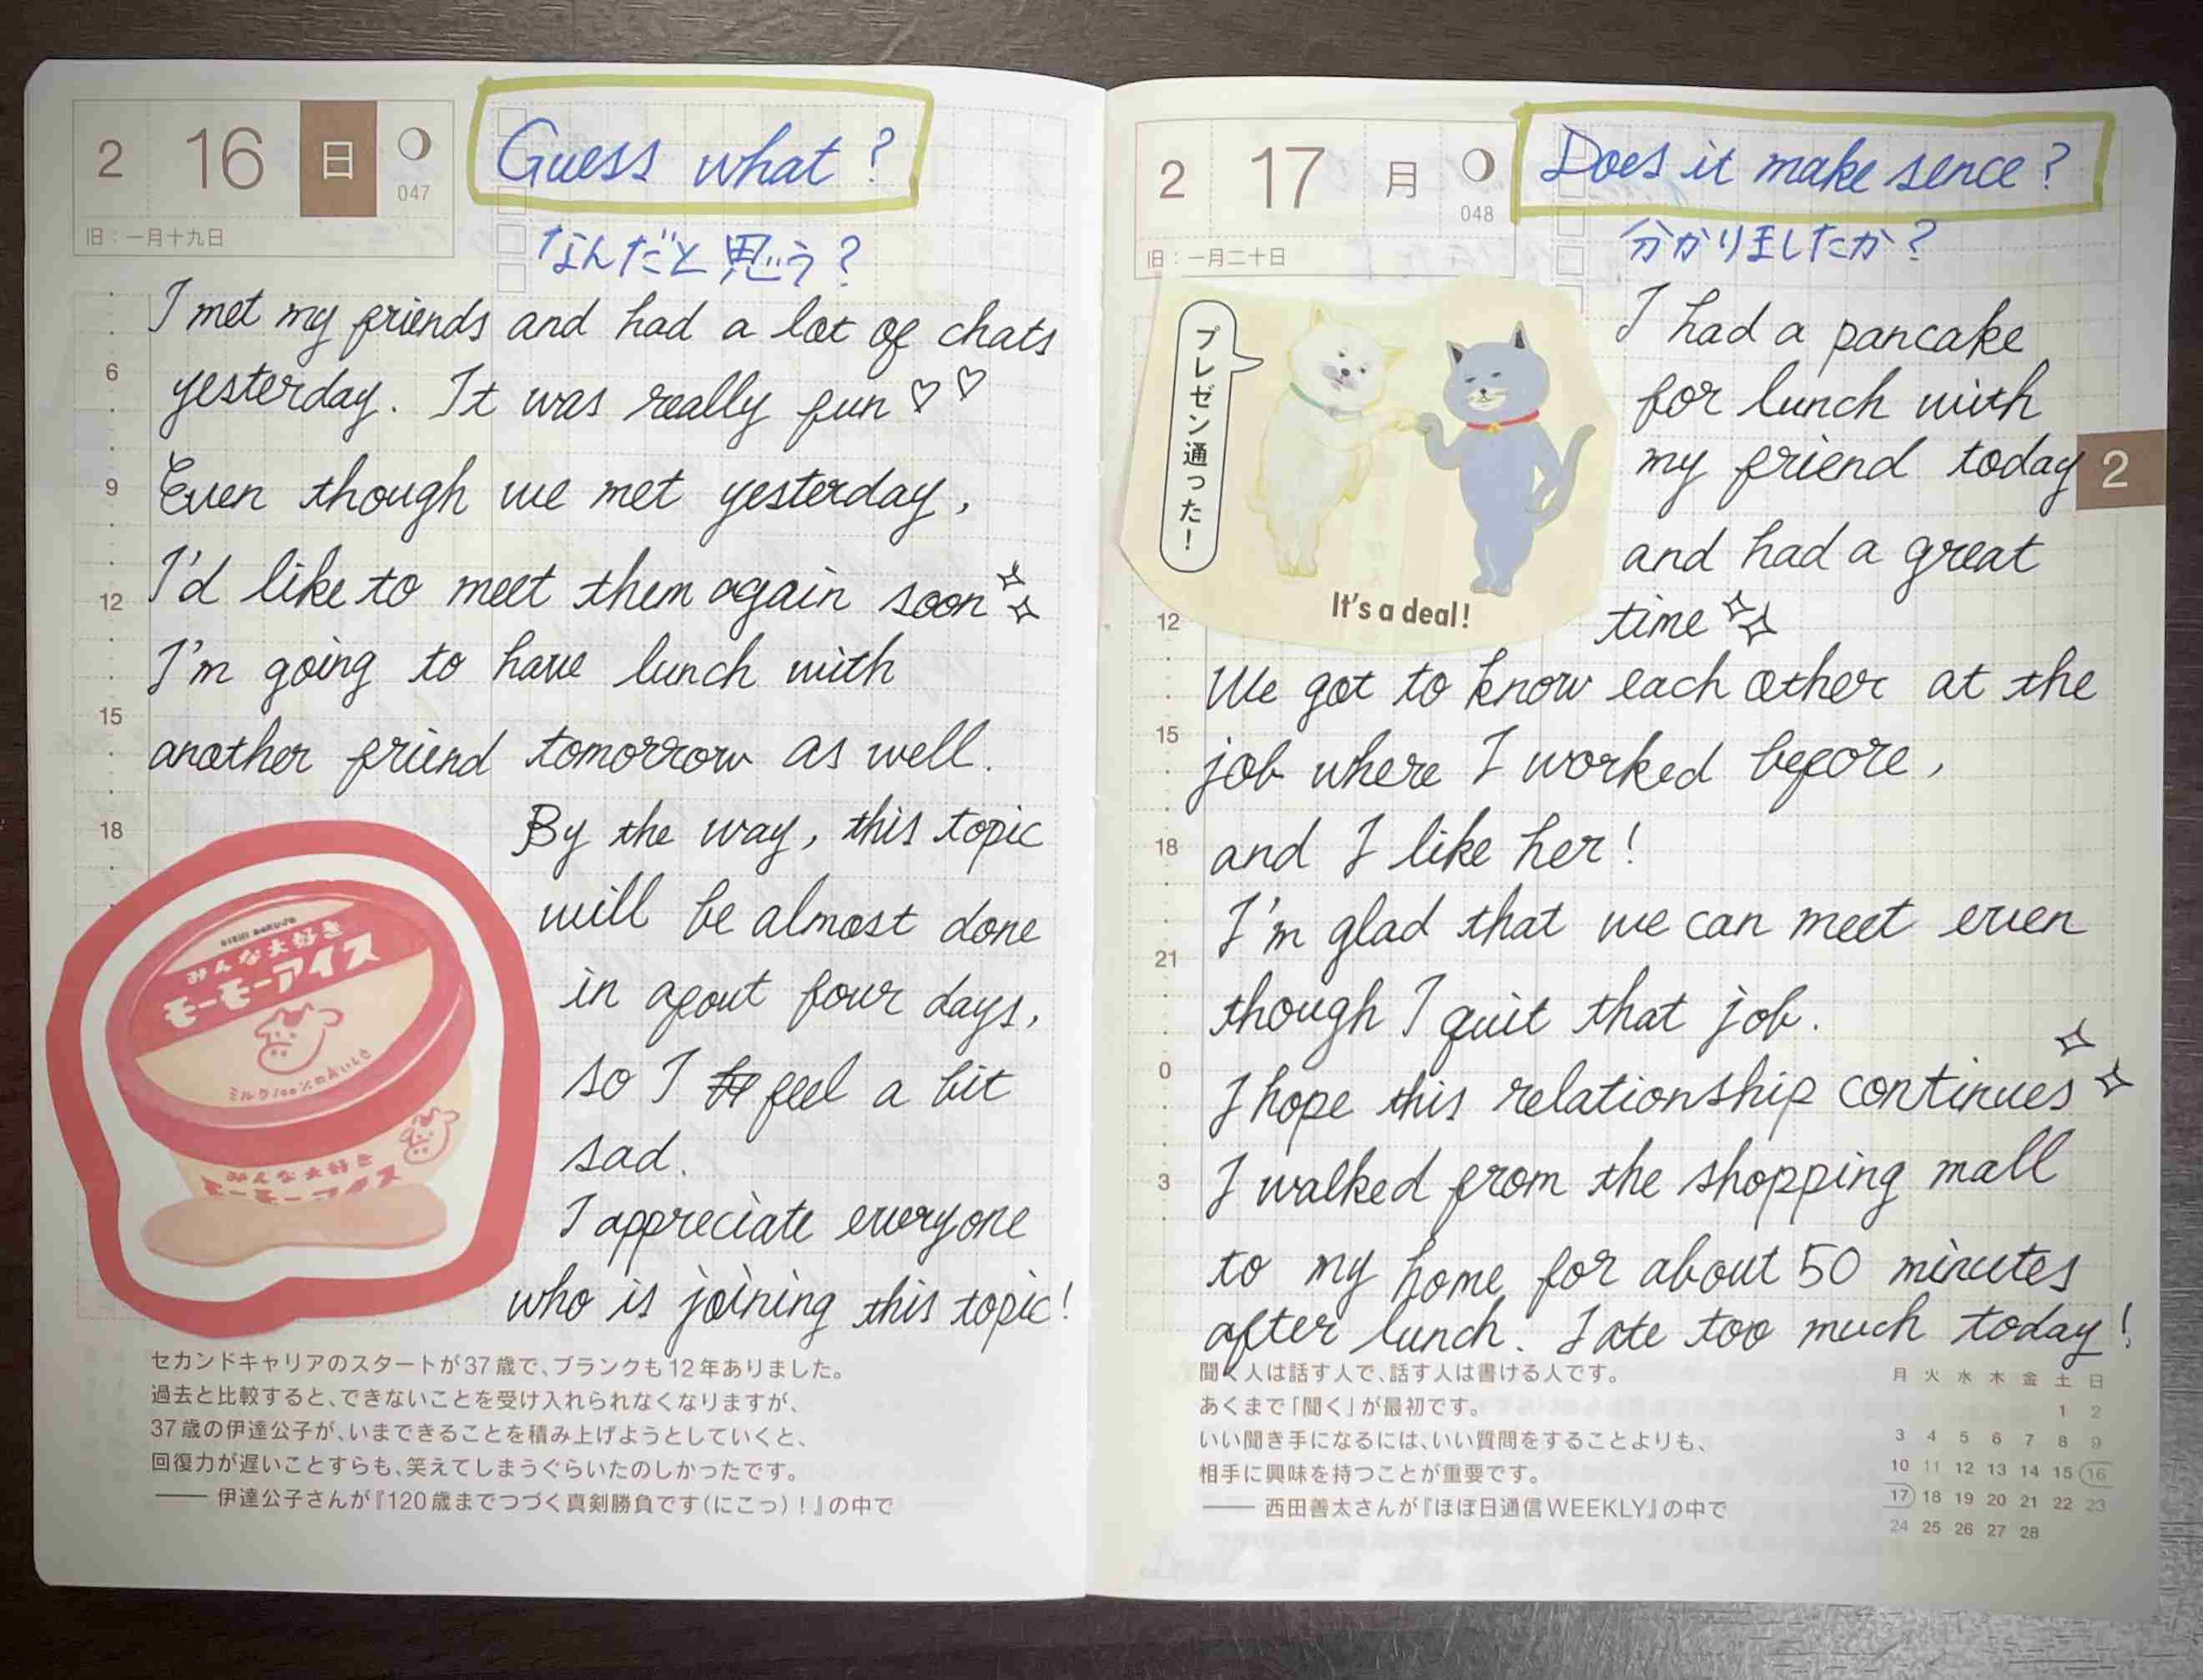 2 16 日
047
旧：一月十九日
Guess what?
なんだと思う?
I met my friends and had a lot of chats
yesterday. It was really fun♡♡
Even though we met yesterday,
I'd like to meet them again soon
I'm going to have lunch with
another friend tomorrow as well.
By the way, this topic
will be almost done
in apout four days,
so I feel a bit
sad.
I appreciate everyone
who is joining this topic!
6
9
12
15
18
みんな大好き
モーモーアイス
ミルク100%のおいしさ
みんな大好き
モーモーアイス
セカンドキャリアのスタートが37歳で、ブランクも12年ありました。
過去と比較すると、できないことを受け入れられなくなりますが、
37歳の伊達公子が、いまできることを積み上げようとしていくと、
回復力が遅いことすらも、笑えてしまうぐらいたのしかったです。
―― 伊達公子さんが『120歳までつづく真剣勝負です(にこっ)！』の中で
2 17 月
048
旧：一月二十日
Does it make sence?
分かりましたか?
プレゼン通った！
It's a deal!
I had a pancake
for lunch with
my friend today
and had a great
time
We got to know each other at the
job where I worked before,
and I like her!
I'm glad that we can meet even
though I quit that job.
I hope this relationship continues
I walked from the shopping mall
to my home for about 50 minutes
after lunch. I ate too much today!
2
12
15
18
21
0
3
聞く人は話す人で、話す人は書ける人です。
あくまで「聞く」が最初です。
いい聞き手になるには、いい質問をすることよりも、
相手に興味を持つことが重要です。
―― 西田善太さんが『ほぼ日通信WEEKLY』の中で
月 火 水 木 金 土 日
1 2
3 4 5 6 7 8 9
10 11 12 13 14 15 16
17 18 19 20 21 22 23
24 25 26 27 28